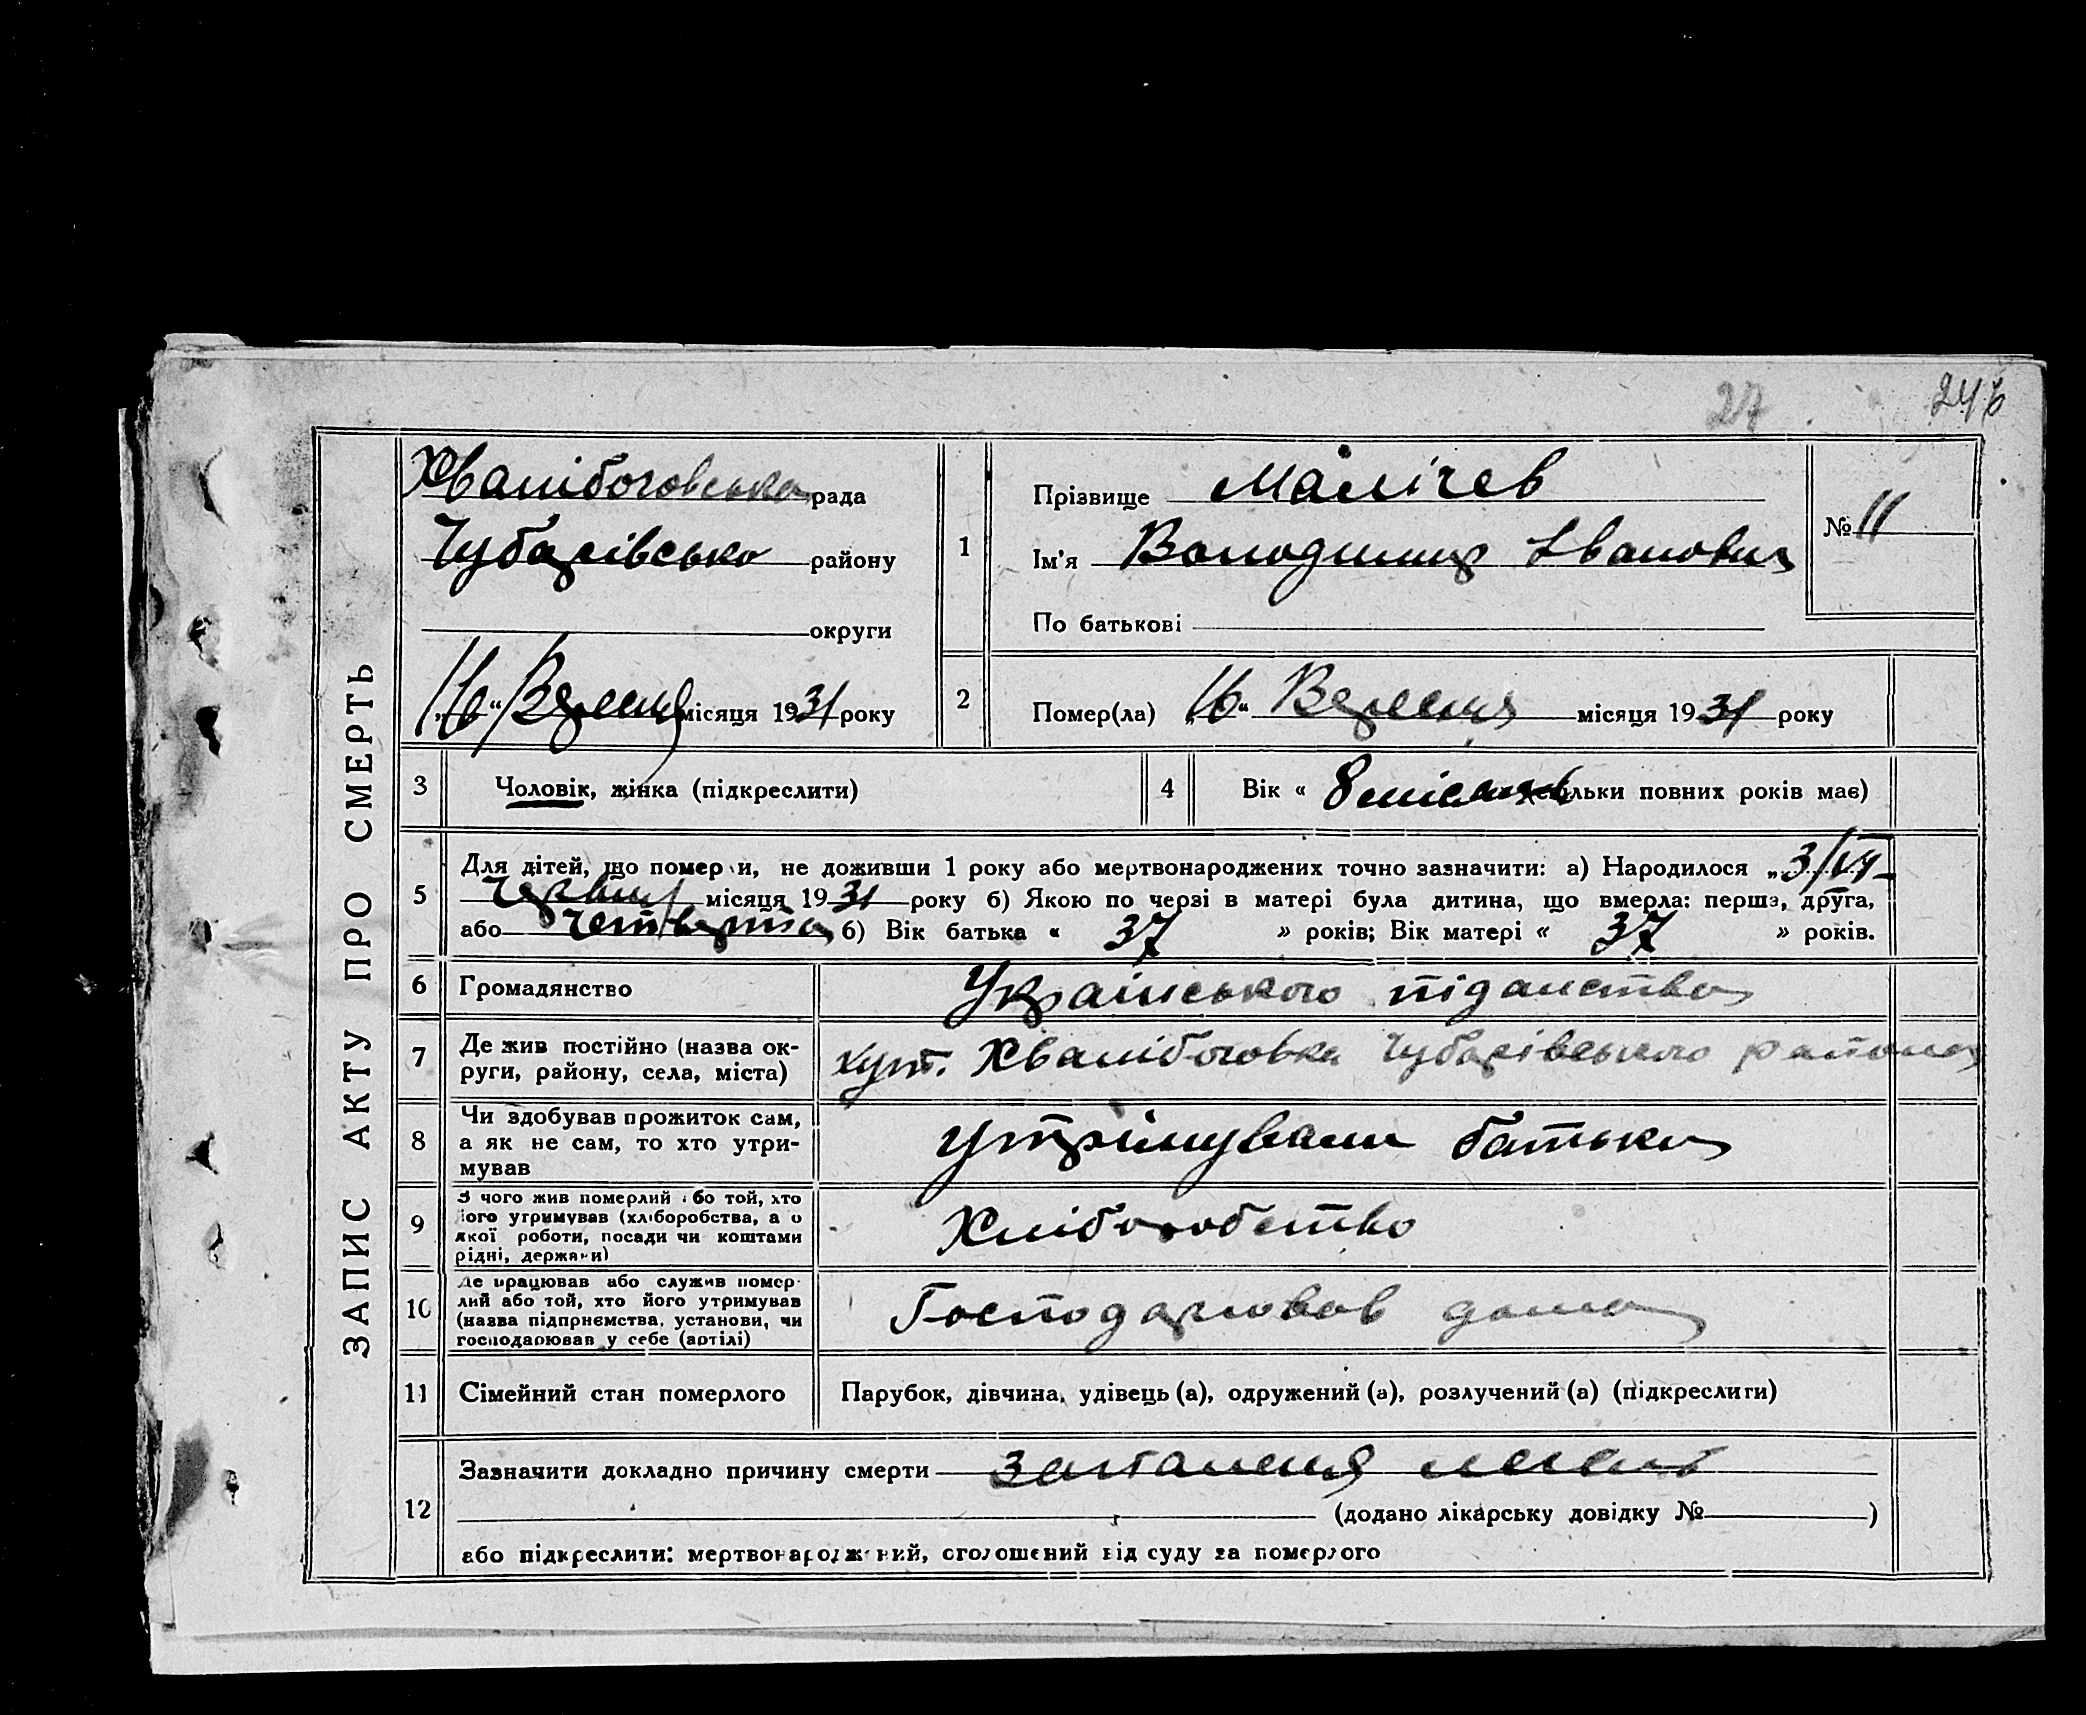 27 246
ЗАПИС АКТУ ПРО СМЕРТЬ
Хвалібоговська рада
Чубарівсько району
округи
„16“ Вересня місяця 1931 року
1
Прізвище Малічев
Ім'я Володимир Іванович
По батькові
№ 11
2
Помер(ла) „16“ Вересня місяця 1931 року
3 Чоловік, жінка (підкреслити)
4 Вік « 8 місяців (скільки повних років має)
5 Для дітей, що померли, не доживши 1 року або мертвонароджених точно зазначити: а) Народилося „3/VI
Червня місяця 1931 року б) Якою по черзі в матері була дитина, що вмерла: перша, друга,
або четверта б) Вік батька « 37 » років; Вік матері « 37 » років.
6 Громадянство Українського підданства
7 Де жив постійно (назва ок-
руги, району, села, міста) хут. Хвалібоговка Чубарівського района
8 Чи здобував прожиток сам,
а як не сам, то хто утри-
мував утрімували батьки
9 З чого жив померлий або той, хто
його утримував (хліборобства, а о
якої роботи, посади чи коштами
рідні, держави) Хліборобство
10 Де працював або служив помер-
лий або той, хто його утримував
(назва підприємства, установи, чи
господарював у себе (артілі) Господарював дома
11 Сімейний стан померлого Парубок, дівчина, удівець (а), одружений (а), розлучений (а) (підкреслити)
12 Зазначити докладно причину смерти запаленя легенів
(додано лікарську довідку № )
або підкреслити: мертвонароджений, оголошений від суду за померлого